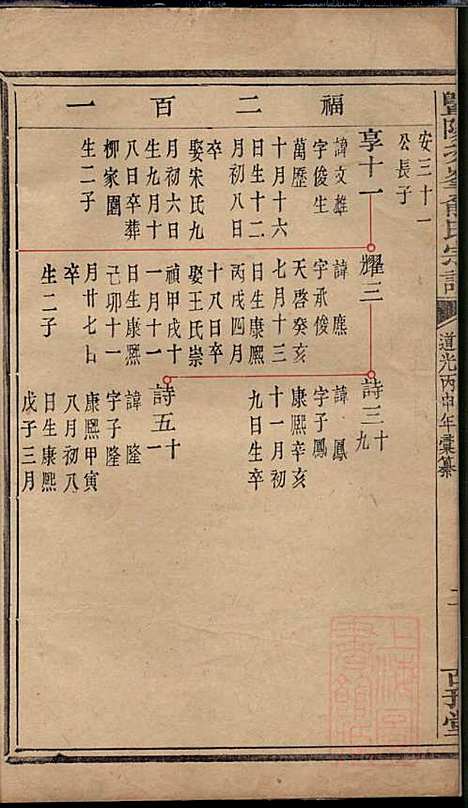 福二百一
安三十一
公長子
享十一
諱文雄
字俊生
萬歷
十月十六
日生十二
月初八日
卒
娶宋氏九
月初六日
生九月十
八日卒葬
柳家園
生二子
耀三
諱應
字承俊
天啓癸亥
七月十三
日生康熙
丙戌四月
十八日卒
娶王氏崇
禎甲戌十
一月十一
日生康熙
己卯十一
月廿七日
卒
生二子
詩三十九
諱鳳
字子鳳
康熙辛亥
十一月初
九日生卒
詩五十一
諱隆
字子隆
康熙甲寅
八月初八
日生康熙
戊子三月
道光丙申年彙纂
二